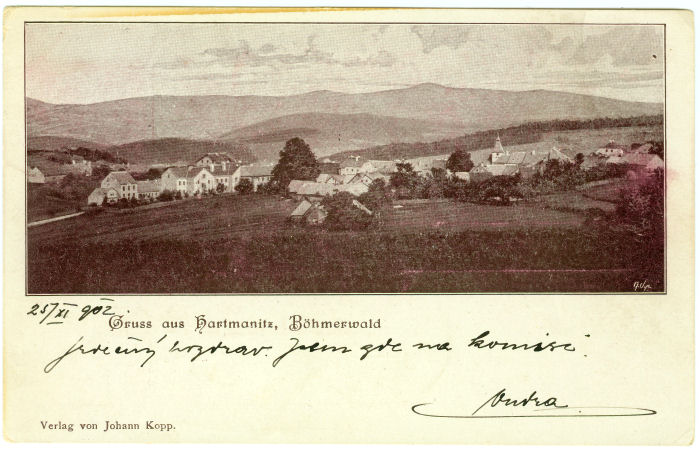 25/XI 902.
Gruss aus Hartmanitz, Böhmerwald
Srdečný pozdrav. Jsem zde na komisi.
Ondra
Verlag von Johann Kopp.